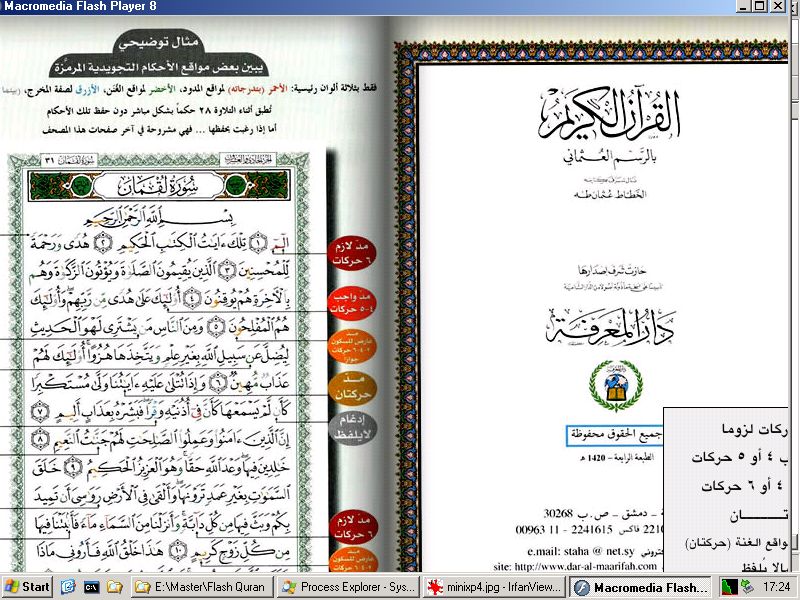 Macromedia Flash Player 8
القرآن الكريم
بالرسم العثماني
الخطاط عثمان طه
حازت شرف إصدارها
دار المعرفة
جميع الحقوق محفوظة
الطبعة الرابعة - 1420 هـ
ـة - دمشق - ص.ب 30268
فاكس 2241615 - 11 00963
e.mail: staha @ net.sy
site: http://www.dar-al-maarifah.com
مثال توضيحي
يبين بعض مواقع الأحكام التجويدية المرمّزة
فقط بثلاثة ألوان رئيسية: الأحمر (بتدرجاته) لمواقع المدود، الأخضر لمواقع الغُنن، الأزرق لصفة المخرج،
تُطبق أثناء التلاوة ٢٨ حكماً بشكل مباشر دون حفظ تلك الأحكام
أما إذا رغبت بحفظها ... فهي مشروحة في آخر صفحات هذا المصحف
سورة لقمان ٣١
سورة لقمان
بسم الله الرحمن الرحيم
الٓمٓ ١ تِلْكَ ءَايَٰتُ ٱلْكِتَٰبِ ٱلْحَكِيمِ ٢ هُدًى وَرَحْمَةً
لِّلْمُحْسِنِينَ ٣ ٱلَّذِينَ يُقِيمُونَ ٱلصَّلَوٰةَ وَيُؤْتُونَ ٱلزَّكَوٰةَ وَهُم
بِٱلْءَاخِرَةِ هُمْ يُوقِنُونَ ٤ أُوْلَٰٓئِكَ عَلَىٰ هُدًى مِّن رَّبِّهِمْ وَأُوْلَٰٓئِكَ
هُمُ ٱلْمُفْلِحُونَ ٥ وَمِنَ ٱلنَّاسِ مَن يَشْتَرِى لَهْوَ ٱلْحَدِيثِ
لِيُضِلَّ عَن سَبِيلِ ٱللَّهِ بِغَيْرِ عِلْمٍ وَيَتَّخِذَهَا هُزُوًا أُوْلَٰٓئِكَ لَهُمْ
عَذَابٌ مُّهِينٌ ٦ وَإِذَا تُتْلَىٰ عَلَيْهِ ءَايَٰتُنَا وَلَّىٰ مُسْتَكْبِرًا
كَأَن لَّمْ يَسْمَعْهَا كَأَنَّ فِىٓ أُذُنَيْهِ وَقْرًا فَبَشِّرْهُ بِعَذَابٍ أَلِيمٍ ٧
إِنَّ ٱلَّذِينَ ءَامَنُوا۟ وَعَمِلُوا۟ ٱلصَّٰلِحَٰتِ لَهُمْ جَنَّٰتُ ٱلنَّعِيمِ ٨
خَٰلِدِينَ فِيهَا وَعْدَ ٱللَّهِ حَقًّا وَهُوَ ٱلْعَزِيزُ ٱلْحَكِيمُ ٩ خَلَقَ
ٱلسَّمَٰوَٰتِ بِغَيْرِ عَمَدٍ تَرَوْنَهَا وَأَلْقَىٰ فِى ٱلْأَرْضِ رَوَٰسِىَ أَن تَمِيدَ
بِكُمْ وَبَثَّ فِيهَا مِن كُلِّ دَآبَّةٍ وَأَنزَلْنَا مِنَ ٱلسَّمَآءِ مَآءً فَأَنۢبَتْنَا فِيهَا
مِن كُلِّ زَوْجٍ كَرِيمٍ ١٠ هَٰذَا خَلْقُ ٱللَّهِ فَأَرُونِى مَاذَا
مد لازم
٦ حركات
مد واجب
٤-٥ حركات
مد
عارض للسكون
٢-٤-٦ حركات
جوازاً
مد
حركتان
إدغام
لا يلفظ
مد لازم
٦ حركات
مد
عارض للسكون
ركات لزوما
ب ٤ أو ٥ حركات
٤ أو ٦ حركات
ـتـــان
واقع الغنة (حركتان)
مالا يُلفظ
Start
E:\Master\Flash Quran
Process Explorer - Sys...
minixp4.jpg - IrfanView...
Macromedia Flash...
17:24